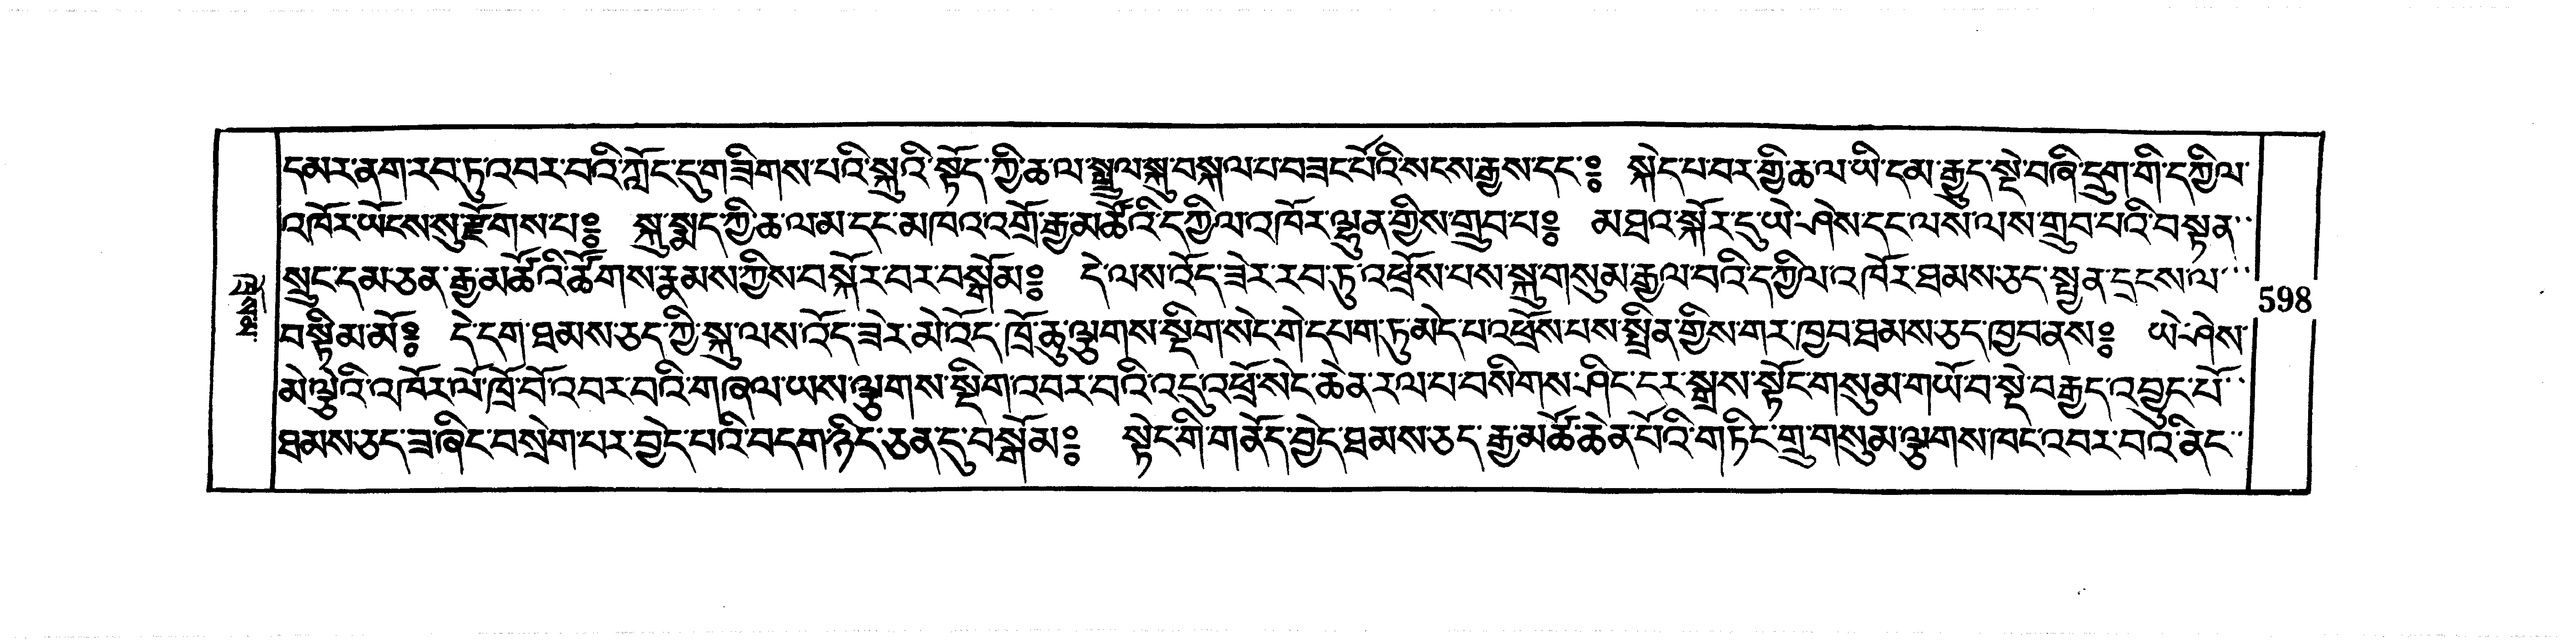 དམར་ནག་རབ་ཏུ་འབར་བའི་ཀློང་དུ་གཟིགས་པའི་སྐུའི་སྟོད་ཀྱི་ཆ་ལ་སྤྲུལ་སྐུ་བསྐལ་པ་བཟང་པོའི་སངས་རྒྱས་དང་༔ སྐེད་པ་བར་གྱི་ཆ་ལ་ཡི་དམ་རྒྱུད་སྡེ་བཞི་དྲུག་གི་དཀྱིལ་
འཁོར་ཡོངས་སུ་རྫོགས་པ༔ སྐུ་སྨད་ཀྱི་ཆ་ལ་མ་དང་མཁའ་འགྲོ་རྒྱ་མཚོའི་དཀྱིལ་འཁོར་ལྷུན་གྱིས་གྲུབ་པ༔ མཐའ་སྐོར་དུ་ཡེ་ཤེས་དང་ལས་ལས་གྲུབ་པའི་བསྟན་
སྲུང་དམ་ཅན་རྒྱ་མཚོའི་ཚོགས་རྣམས་ཀྱིས་བསྐོར་བར་བསྒོམ༔ དེ་ལས་འོད་ཟེར་རབ་ཏུ་འཕྲོས་པས་སྐུ་གསུམ་རྒྱལ་བའི་དཀྱིལ་འཁོར་ཐམས་ཅད་སྤྱན་དྲངས་ལ་
བསྟིམ་མོ༔ དེ་དག་ཐམས་ཅད་ཀྱི་སྐུ་ལས་འོད་ཟེར་མེ་འོད་ཁྲོ་ཆུ་ལྕགས་སྡིག་སེང་གེ་དཔག་ཏུ་མེད་པ་འཕྲོས་པས་སྤྲིན་གྱིས་གར་ཁྱབ་ཐམས་ཅད་ཁྱབ་ནས༔ ཡེ་ཤེས་
མེ་ལྕེའི་འཁོར་ལོ་ཁྲོ་བོ་འབར་བའི་གཞལ་ཡས་ལྕགས་སྡིག་འབར་བའི་འདུ་འཕྲོ་སེང་ཆེན་རལ་པ་བསིགས་ཤིང་ངར་སྒྲས་སྟོང་གསུམ་གཡོ་བ་སྡེ་བརྒྱད་འབྱུང་པོ་
ཐམས་ཅད་ཟ་ཞིང་བསྲེག་པར་བྱེད་པའི་བདག་ཉིད་ཅན་དུ་བསྒོམ༔ སྟེང་གི་གནོད་བྱེད་ཐམས་ཅད་རྒྱ་མཚོ་ཆེན་པོའི་གཏིང་གྲུ་གསུམ་ལྕགས་ཁང་འབར་བའི་ནང་
598